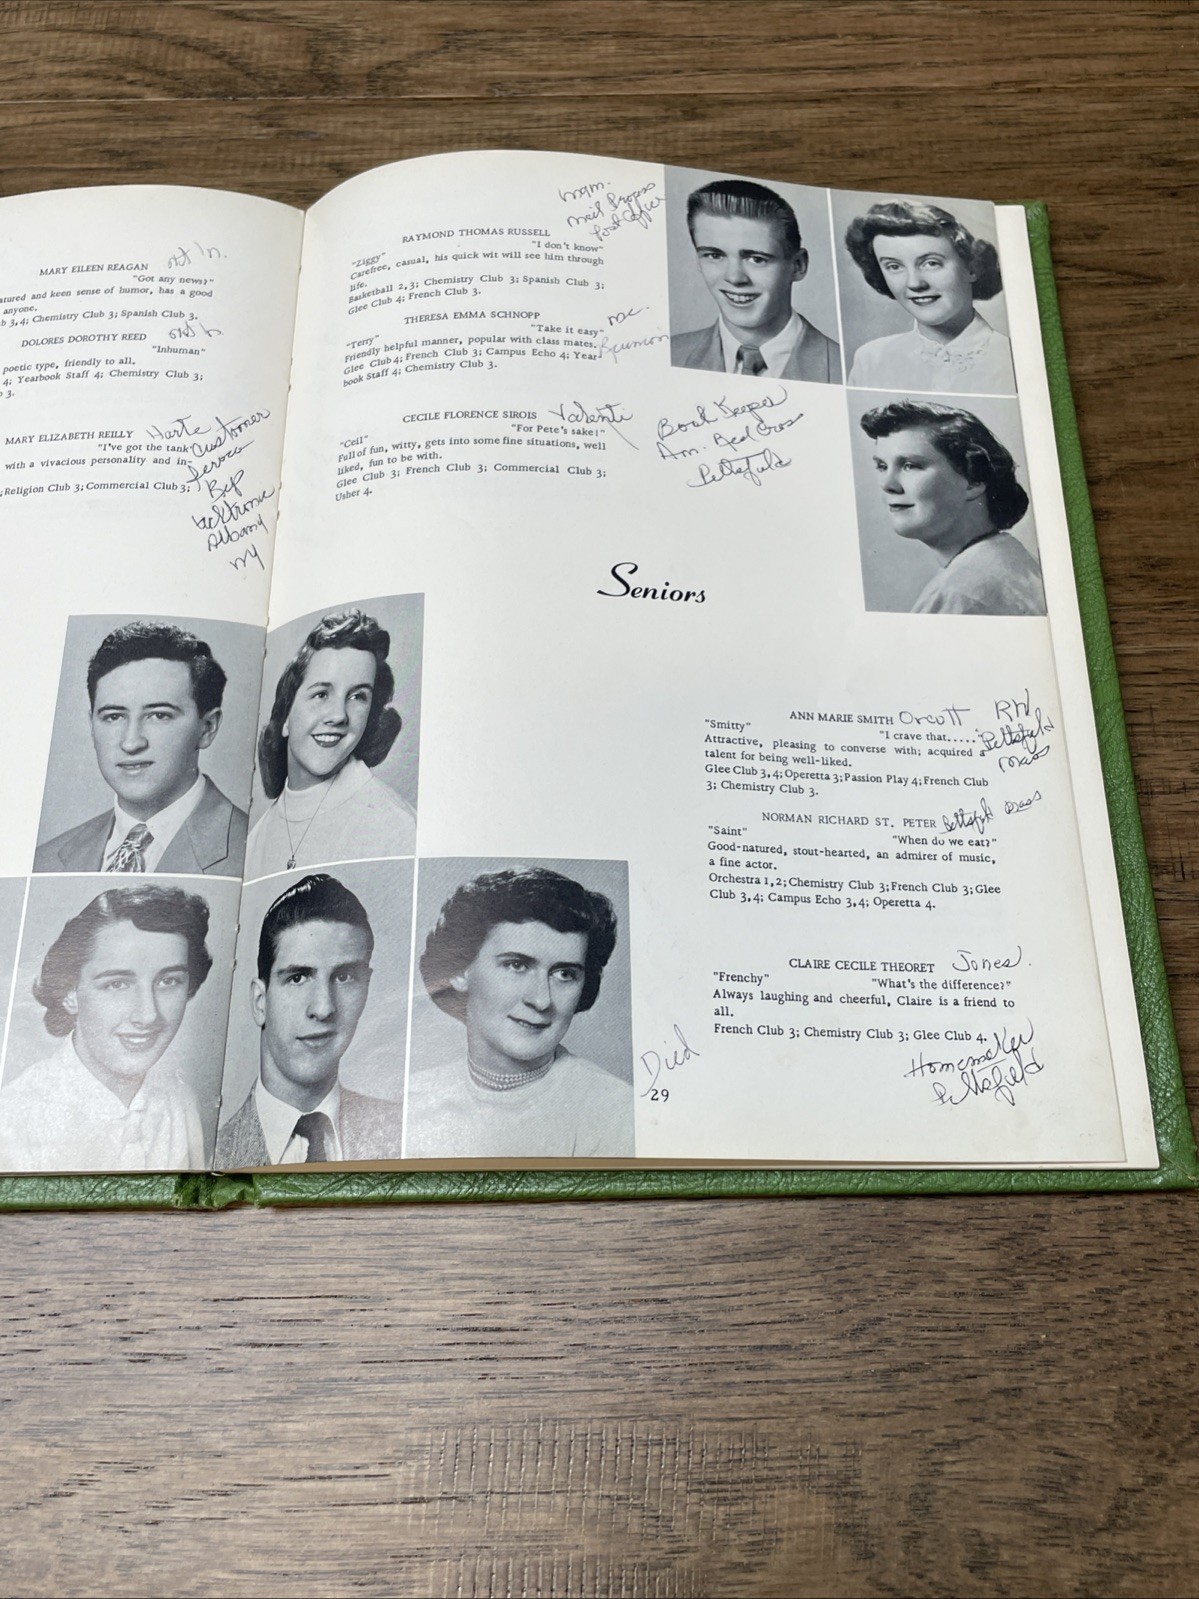 MARY EILEEN REAGAN
"Got any news?"
atured and keen sense of humor, has a good
anyone.
b 3,4; Chemistry Club 3; Spanish Club 3.
DOLORES DOROTHY REED
"Inhuman"
poetic type, friendly to all.
4; Yearbook Staff 4; Chemistry Club 3;
3.
MARY ELIZABETH REILLY Harte
"I've got the tank Customer
with a vivacious personality and in-
Service
; Religion Club 3; Commercial Club 3;
Albany
NY
mgm.
Mail
Post Office
RAYMOND THOMAS RUSSELL
"Ziggy" "I don't know"
Carefree, casual, his quick wit will see him through
life.
Basketball 2,3; Chemistry Club 3; Spanish Club 3;
Glee Club 4; French Club 3.
THERESA EMMA SCHNOPP
"Terry" "Take it easy"
Friendly helpful manner, popular with class mates.
Glee Club 4; French Club 3; Campus Echo 4; Year-
book Staff 4; Chemistry Club 3.
CECILE FLORENCE SIROIS Valenti
"Ceil" "For Pete's sake!"
Full of fun, witty, gets into some fine situations, well
liked, fun to be with.
Glee Club 3; French Club 3; Commercial Club 3;
Usher 4.
Book Keeper
Am. Red Cross
Pittsfield
Seniors
ANN MARIE SMITH Orcutt RN
"Smitty" "I crave that....." Pittsfield
Attractive, pleasing to converse with; acquired a Mass
talent for being well-liked.
Glee Club 3,4; Operetta 3; Passion Play 4; French Club
3; Chemistry Club 3.
NORMAN RICHARD ST. PETER Pittsfield Mass
"Saint" "When do we eat?"
Good-natured, stout-hearted, an admirer of music,
a fine actor.
Orchestra 1,2; Chemistry Club 3; French Club 3; Glee
Club 3,4; Campus Echo 3,4; Operetta 4.
CLAIRE CECILE THEORET Jones.
"Frenchy" "What's the difference?"
Always laughing and cheerful, Claire is a friend to
all.
French Club 3; Chemistry Club 3; Glee Club 4.
Homemaker
Pittsfield
Died
29